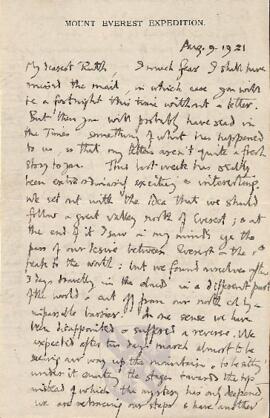 MOUNT EVEREST EXPEDITION.
Aug. 9. 1921
My dearest Ruth, I much fear I shall have
missed the mail, in which case you will
be a fortnight this time without a letter.
But then you will probably have read in
the Times something of what has happened
to us, so that my letters aren't quite a fresh
story to you. This last week has really
been extraordinarily exciting & interesting.
We set out with the idea that we should
follow a great valley north of Everest; & at
the end of it I saw in my mind's eye the
pass of our desire between Everest & the
peak to the north: but we found ourselves after
3 days travelling in the clouds in a different part
of the world & cut off from our north col by
impassable barriers. In one sense we have
been disappointed & suffered a reverse. We
expected after two days march almost to be
seeing our way up the mountain, to be sitting
under it counting the stages towards the top
instead of which the mystery has only deepened
we are retracing our steps & have